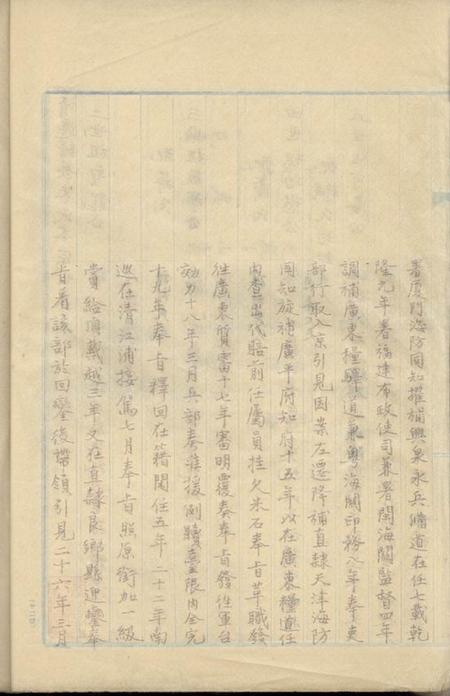 署厦門海防同知擢補興泉永兵備道在任七載乾
隆元年署福建布政使司兼署閩海關監督四年
調補廣東糧驛道兼粵海關印務八年奉吏
部行取入京引見因案左遷降補直隸天津海防
同知旋補廣平府知府十五年以在廣東糧道任
內查出代賠前任屬員挂欠米石奉旨革職發
往廣東質審十七年審明覆奏奉旨發往軍台
効力十八年三月兵部奏准援例贖臺限內全完
十九年奉旨釋回在籍閒住五年二十二年南
巡在清江浦接駕七月奉旨照原銜加一級
賞給頂戴越三年又在直隸良鄉縣迎鑾奉
旨着該部於回鑾後帶領引見二十六年三月